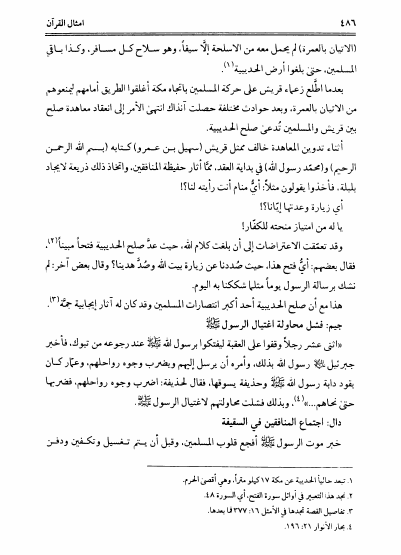 ٤٨٦ امثال القرآن
(الاتيان بالعمرة) لم يحمل معه من الاسلحة إلّا سيفاً، وهو سلاح كل مسافر، وكذا باقي
المسلمين، حتىٰ بلغوا أرض الحديبية(١).
بعدما اطّلع زعماء قريش على حركة المسلمين باتجاه مكة أغلقوا الطريق أمامهم ليمنعوهم
من الاتيان بالعمرة، وبعد حوادث مختلفة حصلت آنذاك انتهىٰ الأمر إلى انعقاد معاهدة صلح
بين قريش والمسلمين تُدعىٰ صلح الحديبية.
أثناء تدوين المعاهدة خالف ممثل قريش (سهيل بن عمرو) كتابه (بسم الله الرحمن
الرحيم) و(محمّد رسول الله) في بداية العقد، ممّا أثار حفيظة المنافقين، واتخاذ ذلك ذريعة لايجاد
بلبلة، فأخذوا يقولون مثلاً: أيُّ منام أنت رأيته لنا؟!
أي زيارة وعدتها إيّانا؟!
يا له من امتياز منحته للكفّار!
وقد تعمّقت الاعتراضات إلى أن بلغت كلام الله، حيث عدَّ صلح الحديبية فتحاً مبيناً(٢)،
فقال بعضهم: أيُّ فتح هذا، حيث صُددنا عن زيارة بيت الله وصُدَّ هدينا؟ وقال بعض آخر: لم
نشك برسالة الرسول يوماً مثلما شككنا به اليوم.
هذا مع أن صلح الحديبية أحد أكبر انتصارات المسلمين وقد كان له آثار إيجابية جمَّة(٣).
جيم: فشل محاولة اغتيال الرسول ﷺ
«اثنى عشر رجلاً وقفوا على العقبة ليفتكوا برسول الله ﷺ عند رجوعه من تبوك، فأخبر
جبرئيل رسول الله بذلك، وأمره أن يرسل إليهم ويضرب وجوه رواحلهم، وعمّار كان
يقود دابة رسول الله ﷺ وحذيفة يسوقها، فقال لحذيفة: اضرب وجوه رواحلهم، فضربها
حتىٰ نحاهم...»(٤)، وبذلك فشلت محاولتهم لاغتيال الرسول ﷺ.
دال: اجتماع المنافقين في السقيفة
خبر موت الرسول ﷺ أفجع قلوب المسلمين، وقبل أن يتم تغسيل وتكفين ودفن
١. تبعد حالياً الحديبية عن مكة ١٧ كيلو متراً، وهي أقصىٰ الحرم.
٢. نجد هذا التعبير في أوائل سورة الفتح، أي السورة ٤٨.
٣. تفاصيل القصة تجدها في الأمثل ١٦: ٣٧٧ فما بعدها.
٤. بحار الأنوار ٢١: ١٩٦.